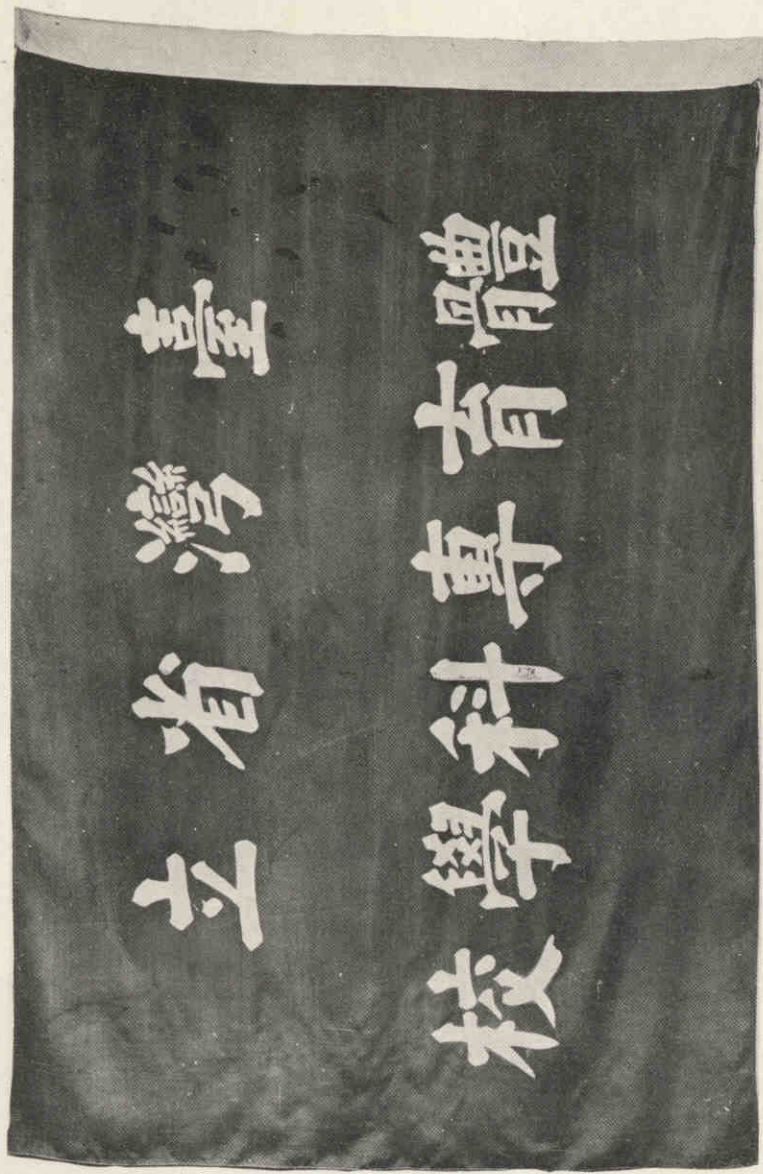 臺灣省立
體育專科學校